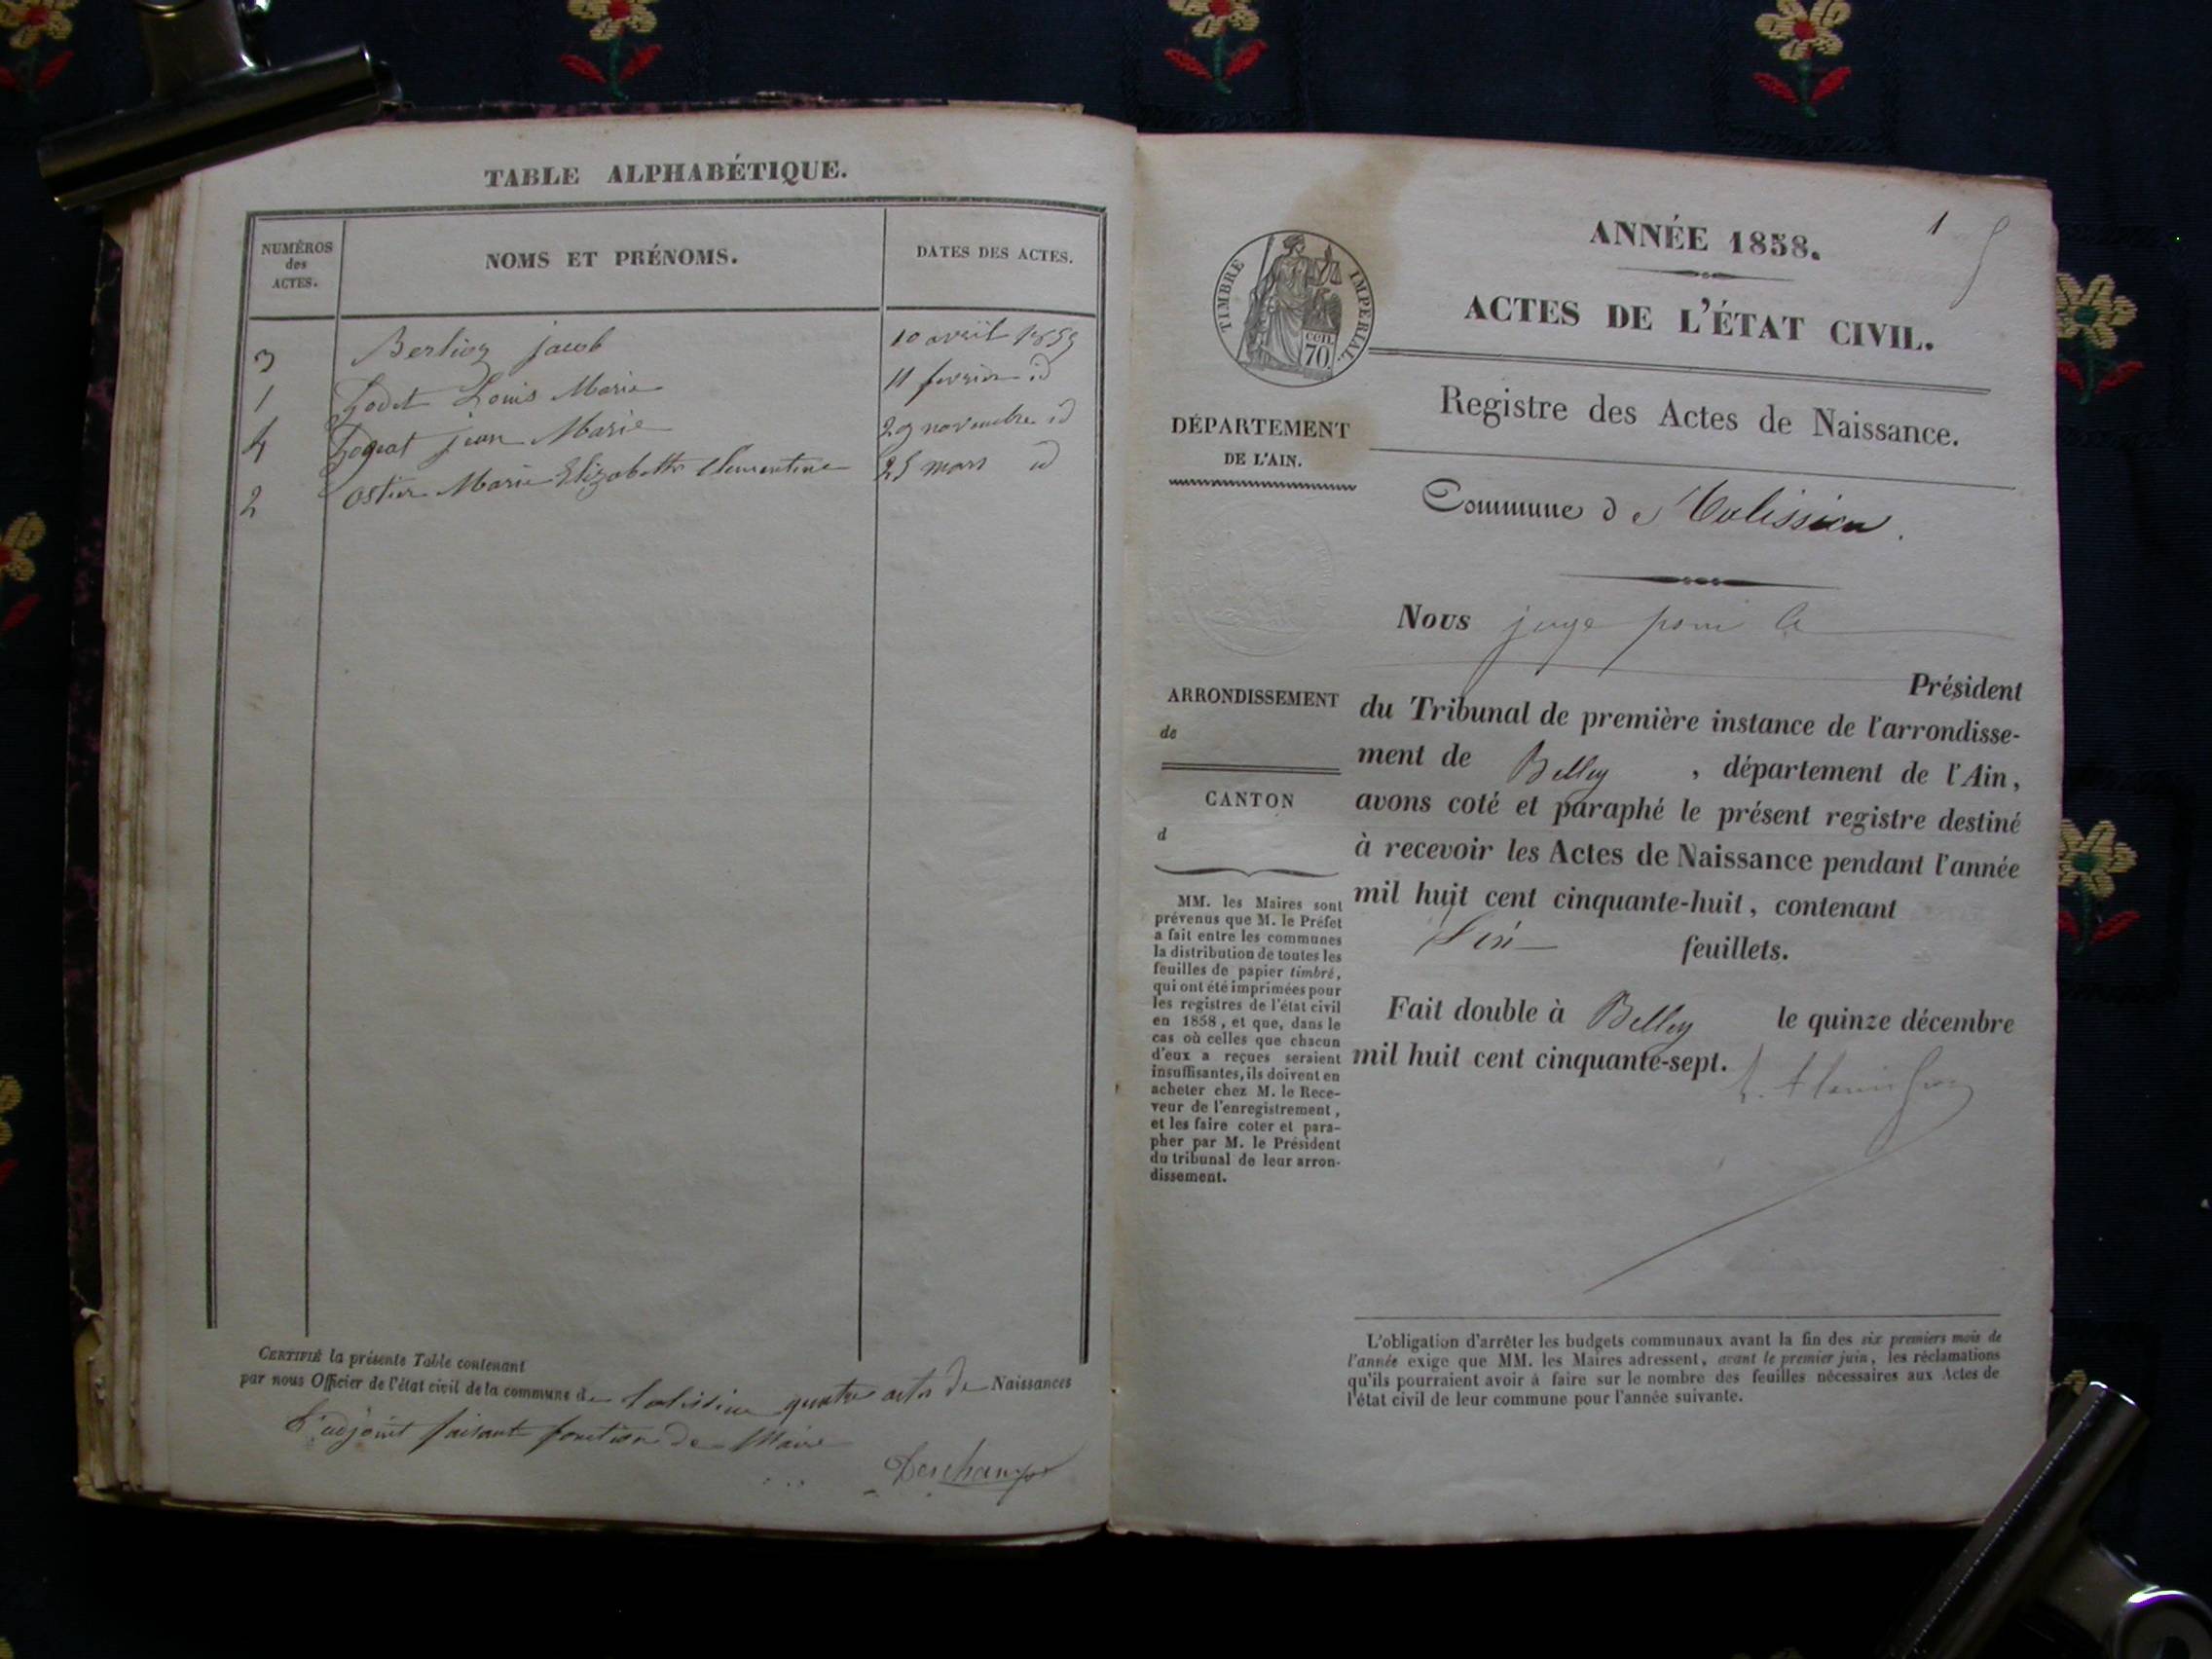 TABLE ALPHABÉTIQUE.
NUMÉROS des ACTES.
NOMS ET PRÉNOMS.
DATES DES ACTES.
3 Berlioz jacob 10 avril
1 Godet Louis Marie 11 fevrier id
4 jean Marie 29 novembre id
2 Ostier Marie Elizabeth Clementine 25 mars id
CERTIFIÉ la présente Table contenant
par nous Officier de l'état civil de la commune de quatre actes de Naissances
L'adjoint faisant fonction de Maire
Deschamps
1
ANNÉE 1858.
ACTES DE L'ÉTAT CIVIL.
Registre des Actes de Naissance.
TIMBRE IMPÉRIAL.
cen.
70.
DÉPARTEMENT
DE L'AIN.
Commune de
Nous juge pour le
Président
du Tribunal de première instance de l'arrondisse-
ment de Belley, département de l'Ain,
avons coté et paraphé le présent registre destiné
à recevoir les Actes de Naissance pendant l'année
mil huit cent cinquante-huit, contenant
feuillets.
Fait double à Belley le quinze décembre
mil huit cent cinquante-sept.
ARRONDISSEMENT
de
CANTON
d
MM. les Maires sont
prévenus que M. le Préfet
a fait entre les communes
la distribution de toutes les
feuilles de papier timbré,
qui ont été imprimées pour
les registres de l'état civil
en 1858, et que, dans le
cas où celles que chacun
d'eux a reçues seraient
insuffisantes, ils doivent en
acheter chez M. le Rece-
veur de l'enregistrement,
et les faire coter et para-
pher par M. le Président
du tribunal de leur arron-
dissement.
L'obligation d'arrêter les budgets communaux avant la fin des six premiers mois de
l'année exige que MM. les Maires adressent, avant le premier juin, les réclamations
qu'ils pourraient avoir à faire sur le nombre des feuilles nécessaires aux Actes de
l'état civil de leur commune pour l'année suivante.